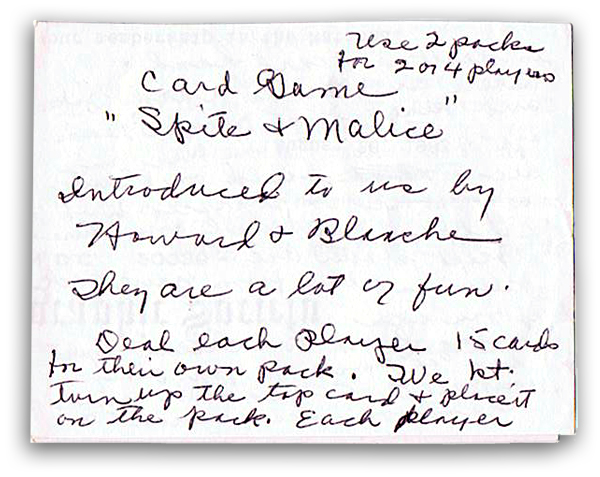 Use 2 packs
for 2 or 4 players
Card Game
"Spite & Malice"
Introduced to us by
Howard & Blanche
They are a lot of fun.
Deal each player 15 cards
for their own pack. We
turn up the top card & place it
on the pack. Each player